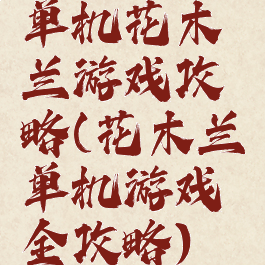 单机花木
兰游戏攻
略(花木兰
单机游戏
全攻略)